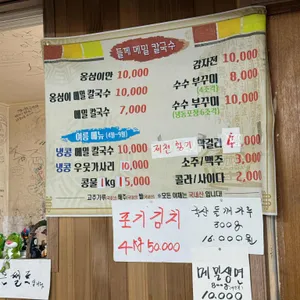 들깨 메밀 칼국수
옹심이만 10,000
옹심이 메밀 칼국수 10,000
메밀 칼국수 7,000
여름 메뉴 (4월~9월)
냉콩 메밀 칼국수 10,000
냉콩 우뭇가사리 10,000
콩물 1kg 15,000
감자전 10,000
수수 부꾸미 8,000
(4조각)
수수 부꾸미 10,000
(냉동포장6조각)
막걸리 4,
소주/맥주 3,000
콜라/사이다 2,000
모든 이제는 국내산 입니다
포기김치
4키로 50,000
국산 들깨가루
300g
16,000원
메밀생면
800g
10,000